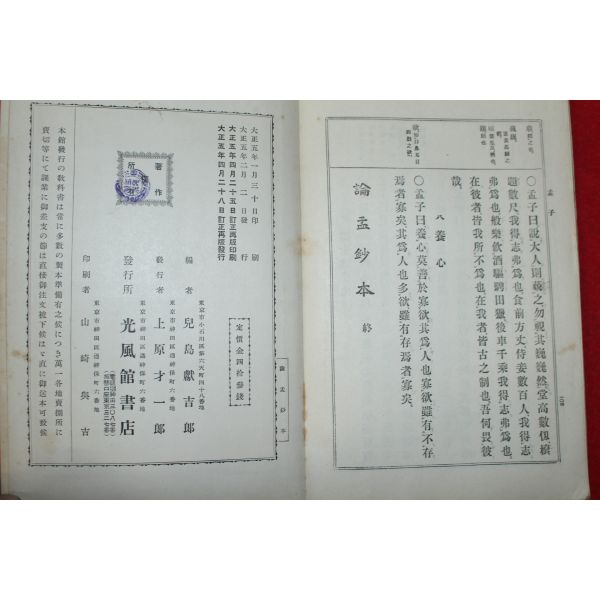 孟子
○孟子曰說大人則藐之勿視其巍巍然堂高數仞榱
題數尺我得志弗爲也食前方丈侍妾數百人我得志
弗爲也般樂飮酒驅騁田獵後車千乘我得志弗爲也
在彼者皆我所不爲也在我者皆古之制也吾何畏彼
哉
八 養心
○孟子曰養心莫善於寡欲其爲人也寡欲雖有不存
焉者寡矣其爲人也多欲雖有存焉者寡矣
論孟鈔本 終
論孟鈔本
大正五年一月三十日印刷
大正五年二月二日發行
大正五年四月二十五日訂正再版印刷
大正五年四月二十八日訂正再版發行
著作
所有
定價金四拾參錢
東京市小石川區第六天町四十八番地
編者 兒島獻吉郎
東京市神田區通神保町六番地
發行者 上原才一郎
東京市神田區通神保町六番地
發行所 光風館書店
印刷者 山崎與吉
本館發行の敎科書は常に多數の製本準備有之候につき萬一各地賣捌所に
賣切等にて授業に御差支の節は直接御注文被下候はゞ直に御送本可致候